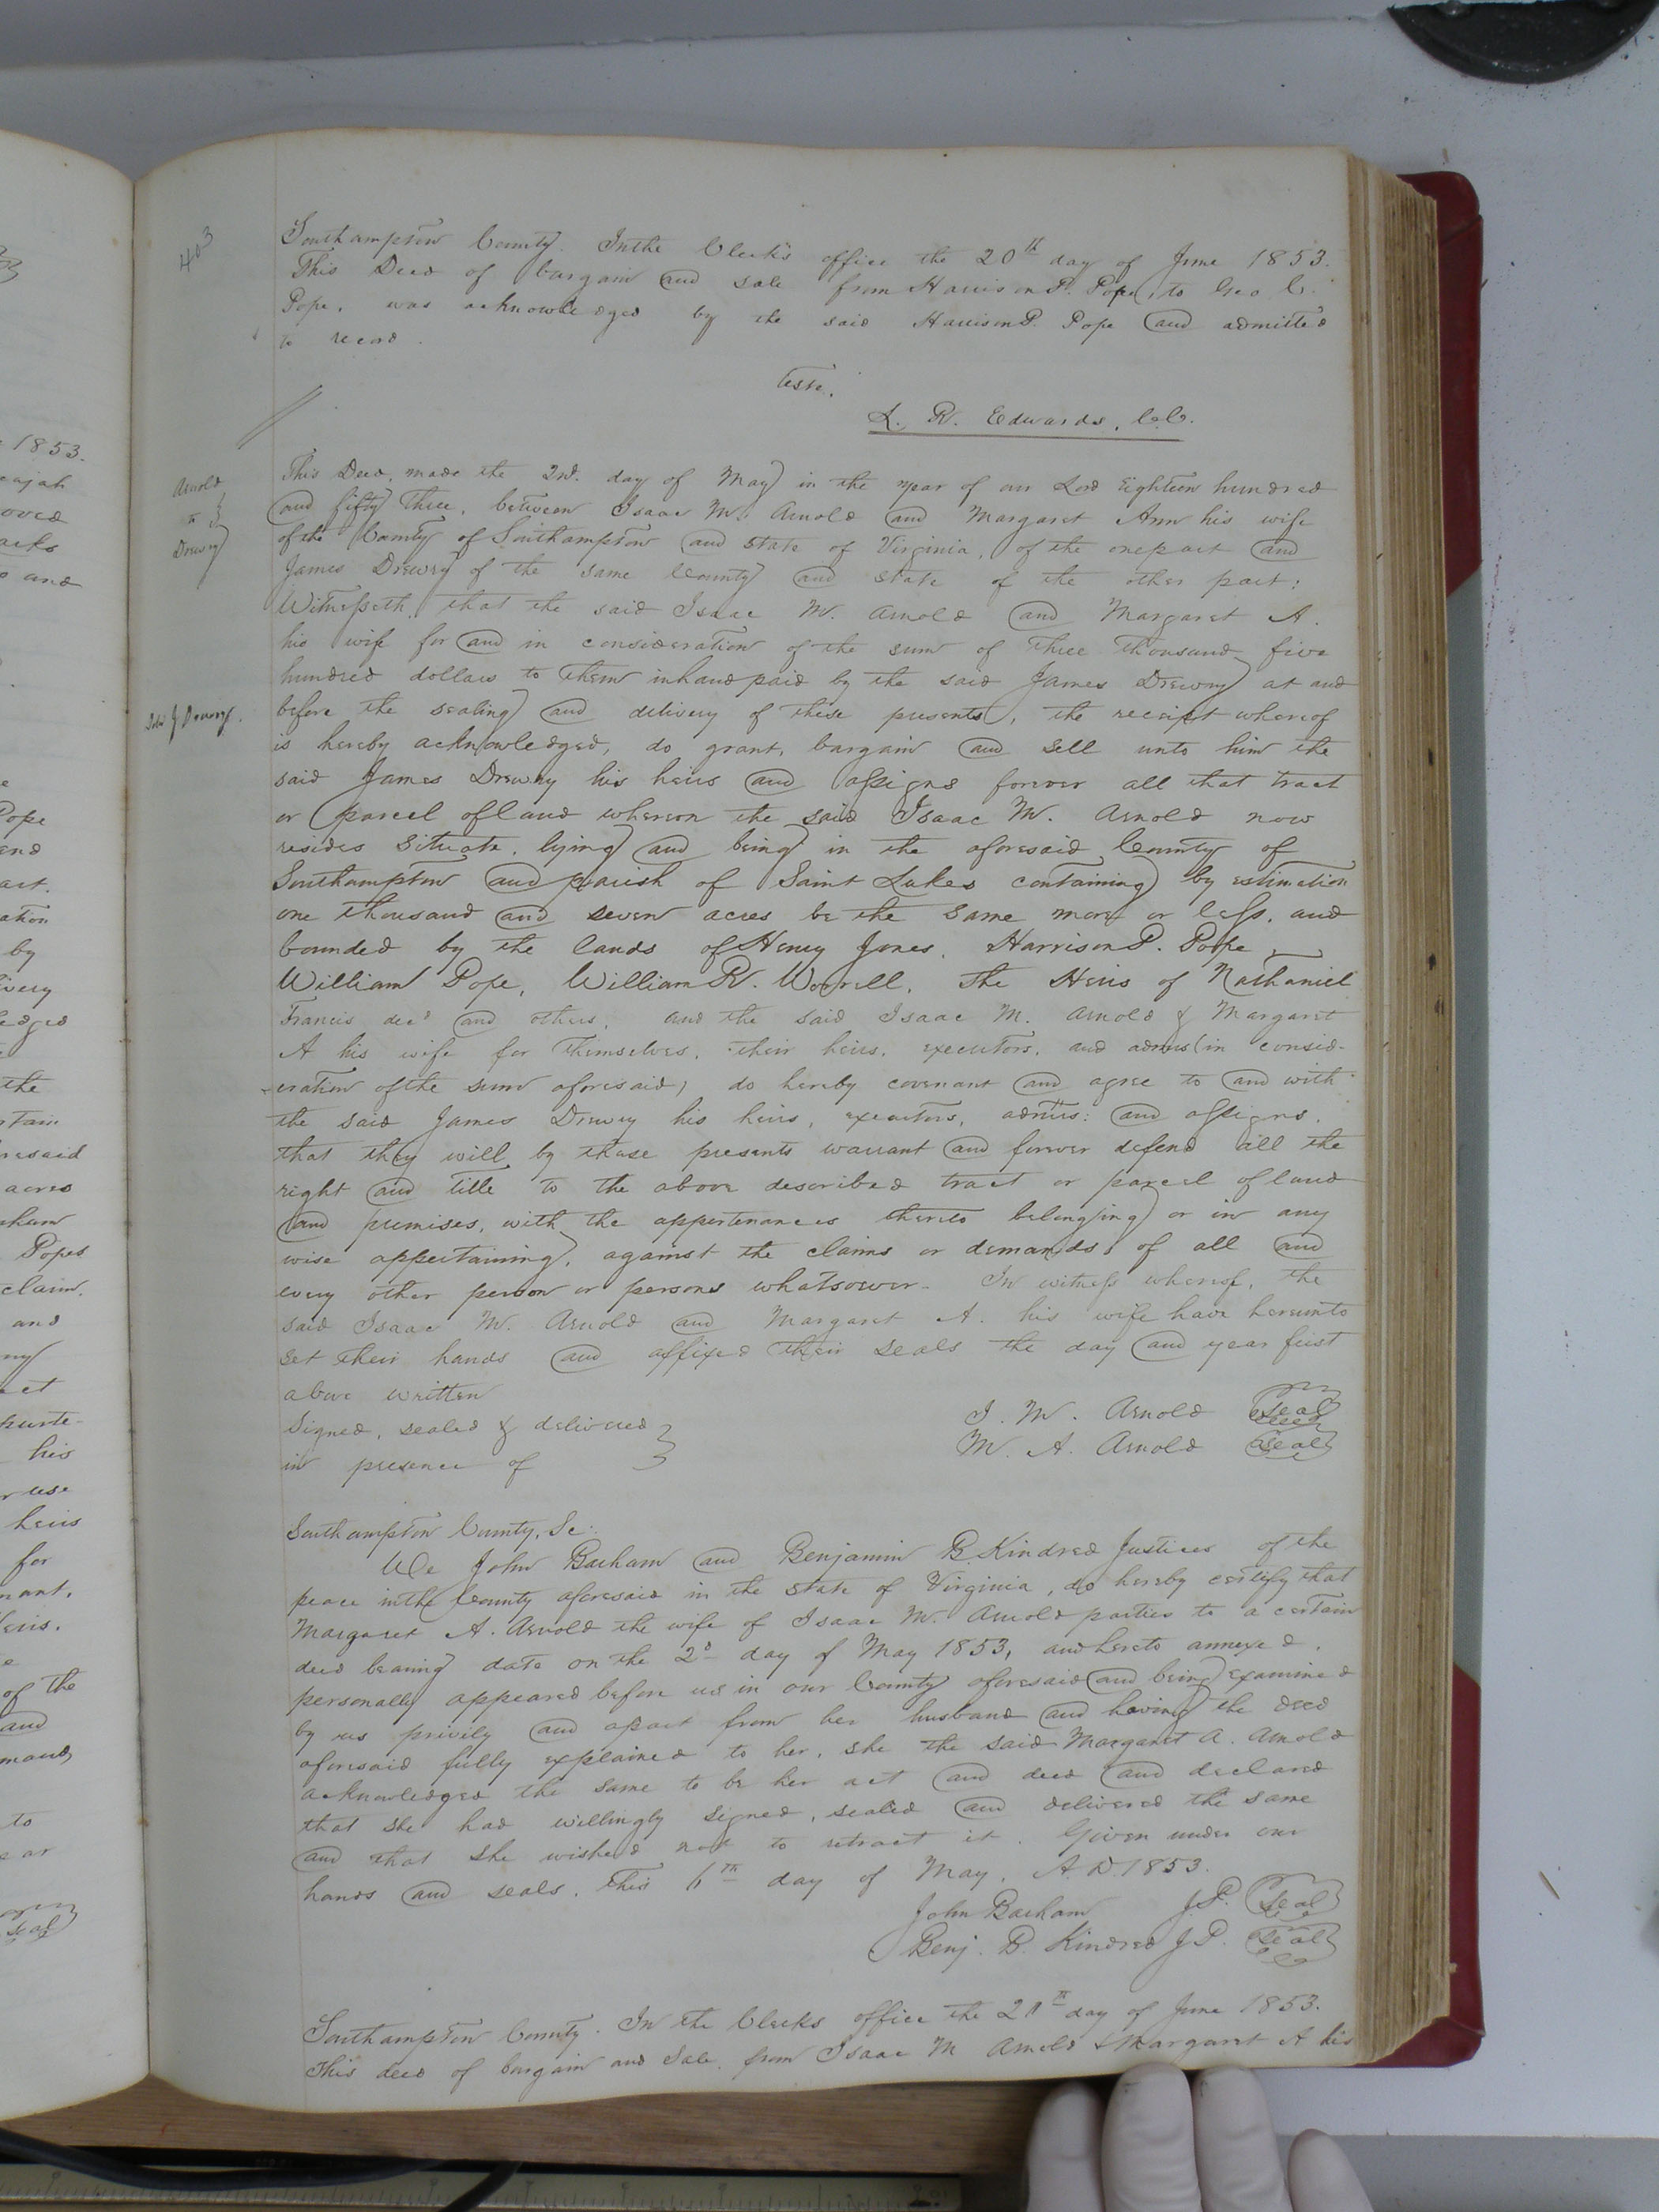 403
Southampton County. In the Clerk's office the 20th day of June 1853.
This Deed of bargain and sale from Harrison P. Pope, to Geo C.
Pope, was acknowledged by the said Harrison P. Pope and admitted
to record.
Teste,
L. R. Edwards, C.C.
Arnold
to
Drewry
This Deed, made the 2nd. day of May in the year of our Lord Eighteen hundred
and fifty Three, between Isaac M. Arnold and Margaret Ann his wife
of the County of Southampton and state of Virginia, of the one part and
James Drewry of the same County and state of the other part:
Witnesseth, that the said Isaac M. Arnold and Margaret A.
his wife for and in consideration of the sum of Three Thousand five
hundred dollars to them in hand paid by the said James Drewry at and
before the sealing and delivery of these presents, the receipt whereof
is hereby acknowledged, do grant, bargain and sell unto him the
said James Drewry his heirs and assigns forever all that tract
or parcel of land whereon the said Isaac M. Arnold now
resides Situate, lying and being in the aforesaid County of
Southampton and parish of Saint Lukes containing by estimation
one thousand and seven acres be the same more or less, and
bounded by the lands of Henry Jones, Harrison P. Pope
William Pope, William R. Worrell, The Heirs of Nathaniel
Francis decd and others, and the said Isaac M. Arnold & Margaret
A his wife for themselves, their heirs, executors, and admrs (in consid-
-eration of the sum aforesaid) do hereby covenant and agree to and with
the said James Drewry his heirs, executors, admrs: and assigns,
that they will by these presents warrant and forever defend all the
right and title to the above described tract or parcel of land
and premises, with the appertenances thereto belonging or in any
wise appertaining, against the claims or demands of all and
every other person or persons whatsoever. In witness whereof, the
said Isaac M. Arnold and Margaret A. his wife have hereunto
set their hands and affixed their seals the day and year first
above written
Signed, sealed & delivered
in presence of
I. M. Arnold Seal
M. A. Arnold Seal
Southampton County, Sc:
We John Barham and Benjamin B Kindred Justices of the
peace in the County aforesaid in the State of Virginia, do hereby certify that
Margaret A. Arnold the wife of Isaac M. Arnold parties to a certain
deed bearing date on the 2d day of May 1853, and hereto annexed,
personally appeared before us in our County aforesaid and being examined
by us privily and apart from her husband and having the deed
aforesaid fully explained to her, she the said Margaret A. Arnold
acknowledged the same to be her act and deed and declared
that she had willingly signed, sealed and delivered the same
and that she wished not to retract it. Given under our
hands and seals, this 6th day of May, A.D. 1853.
John Barham J.P. Seal
Benj. B. Kindred J P. Seal
Southampton County. In the Clerks office the 20th day of June 1853.
This deed of bargain and Sale, from Isaac M Arnold & Margaret A his